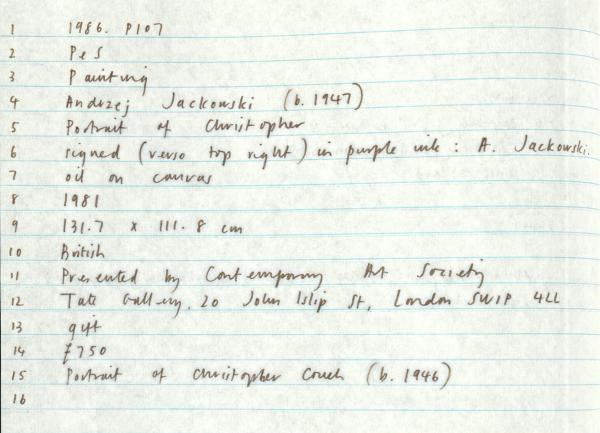 1 1986. P107
2 PeS
3 Painting
4 Andrzej Jackowski (b. 1947)
5 Portrait of Christopher
6 signed (verso top right) in purple ink : A. Jackowski.
7 oil on canvas
8 1981
9 131.7 x 111.8 cm
10 British
11 Presented by Contemporary Art Society
12 Tate Gallery, 20 John Islip St, London SW1P 4LL
13 gift
14 £750
15 Portrait of Christopher Couch (b. 1946)
16